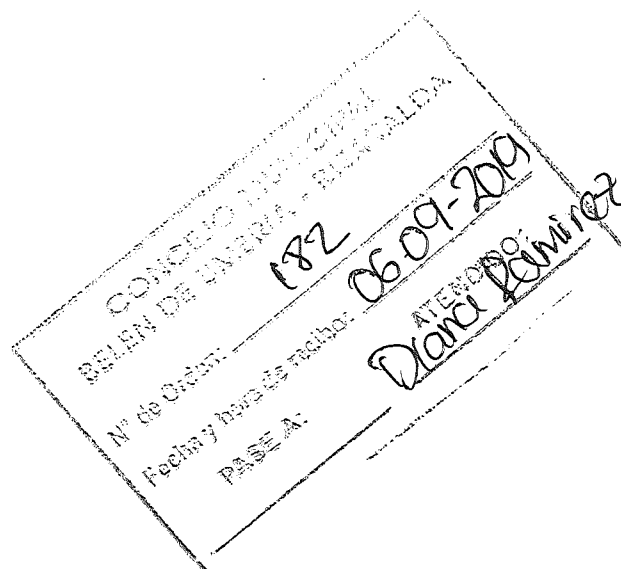 CONCEJO MUNICIPAL
BELEN DE UMBRIA - RISARALDA
N° de Orden: 182
Fecha y hora de recibo: 06-09-2019
PASE A:
ATENDIDO:
Diana Ramirez